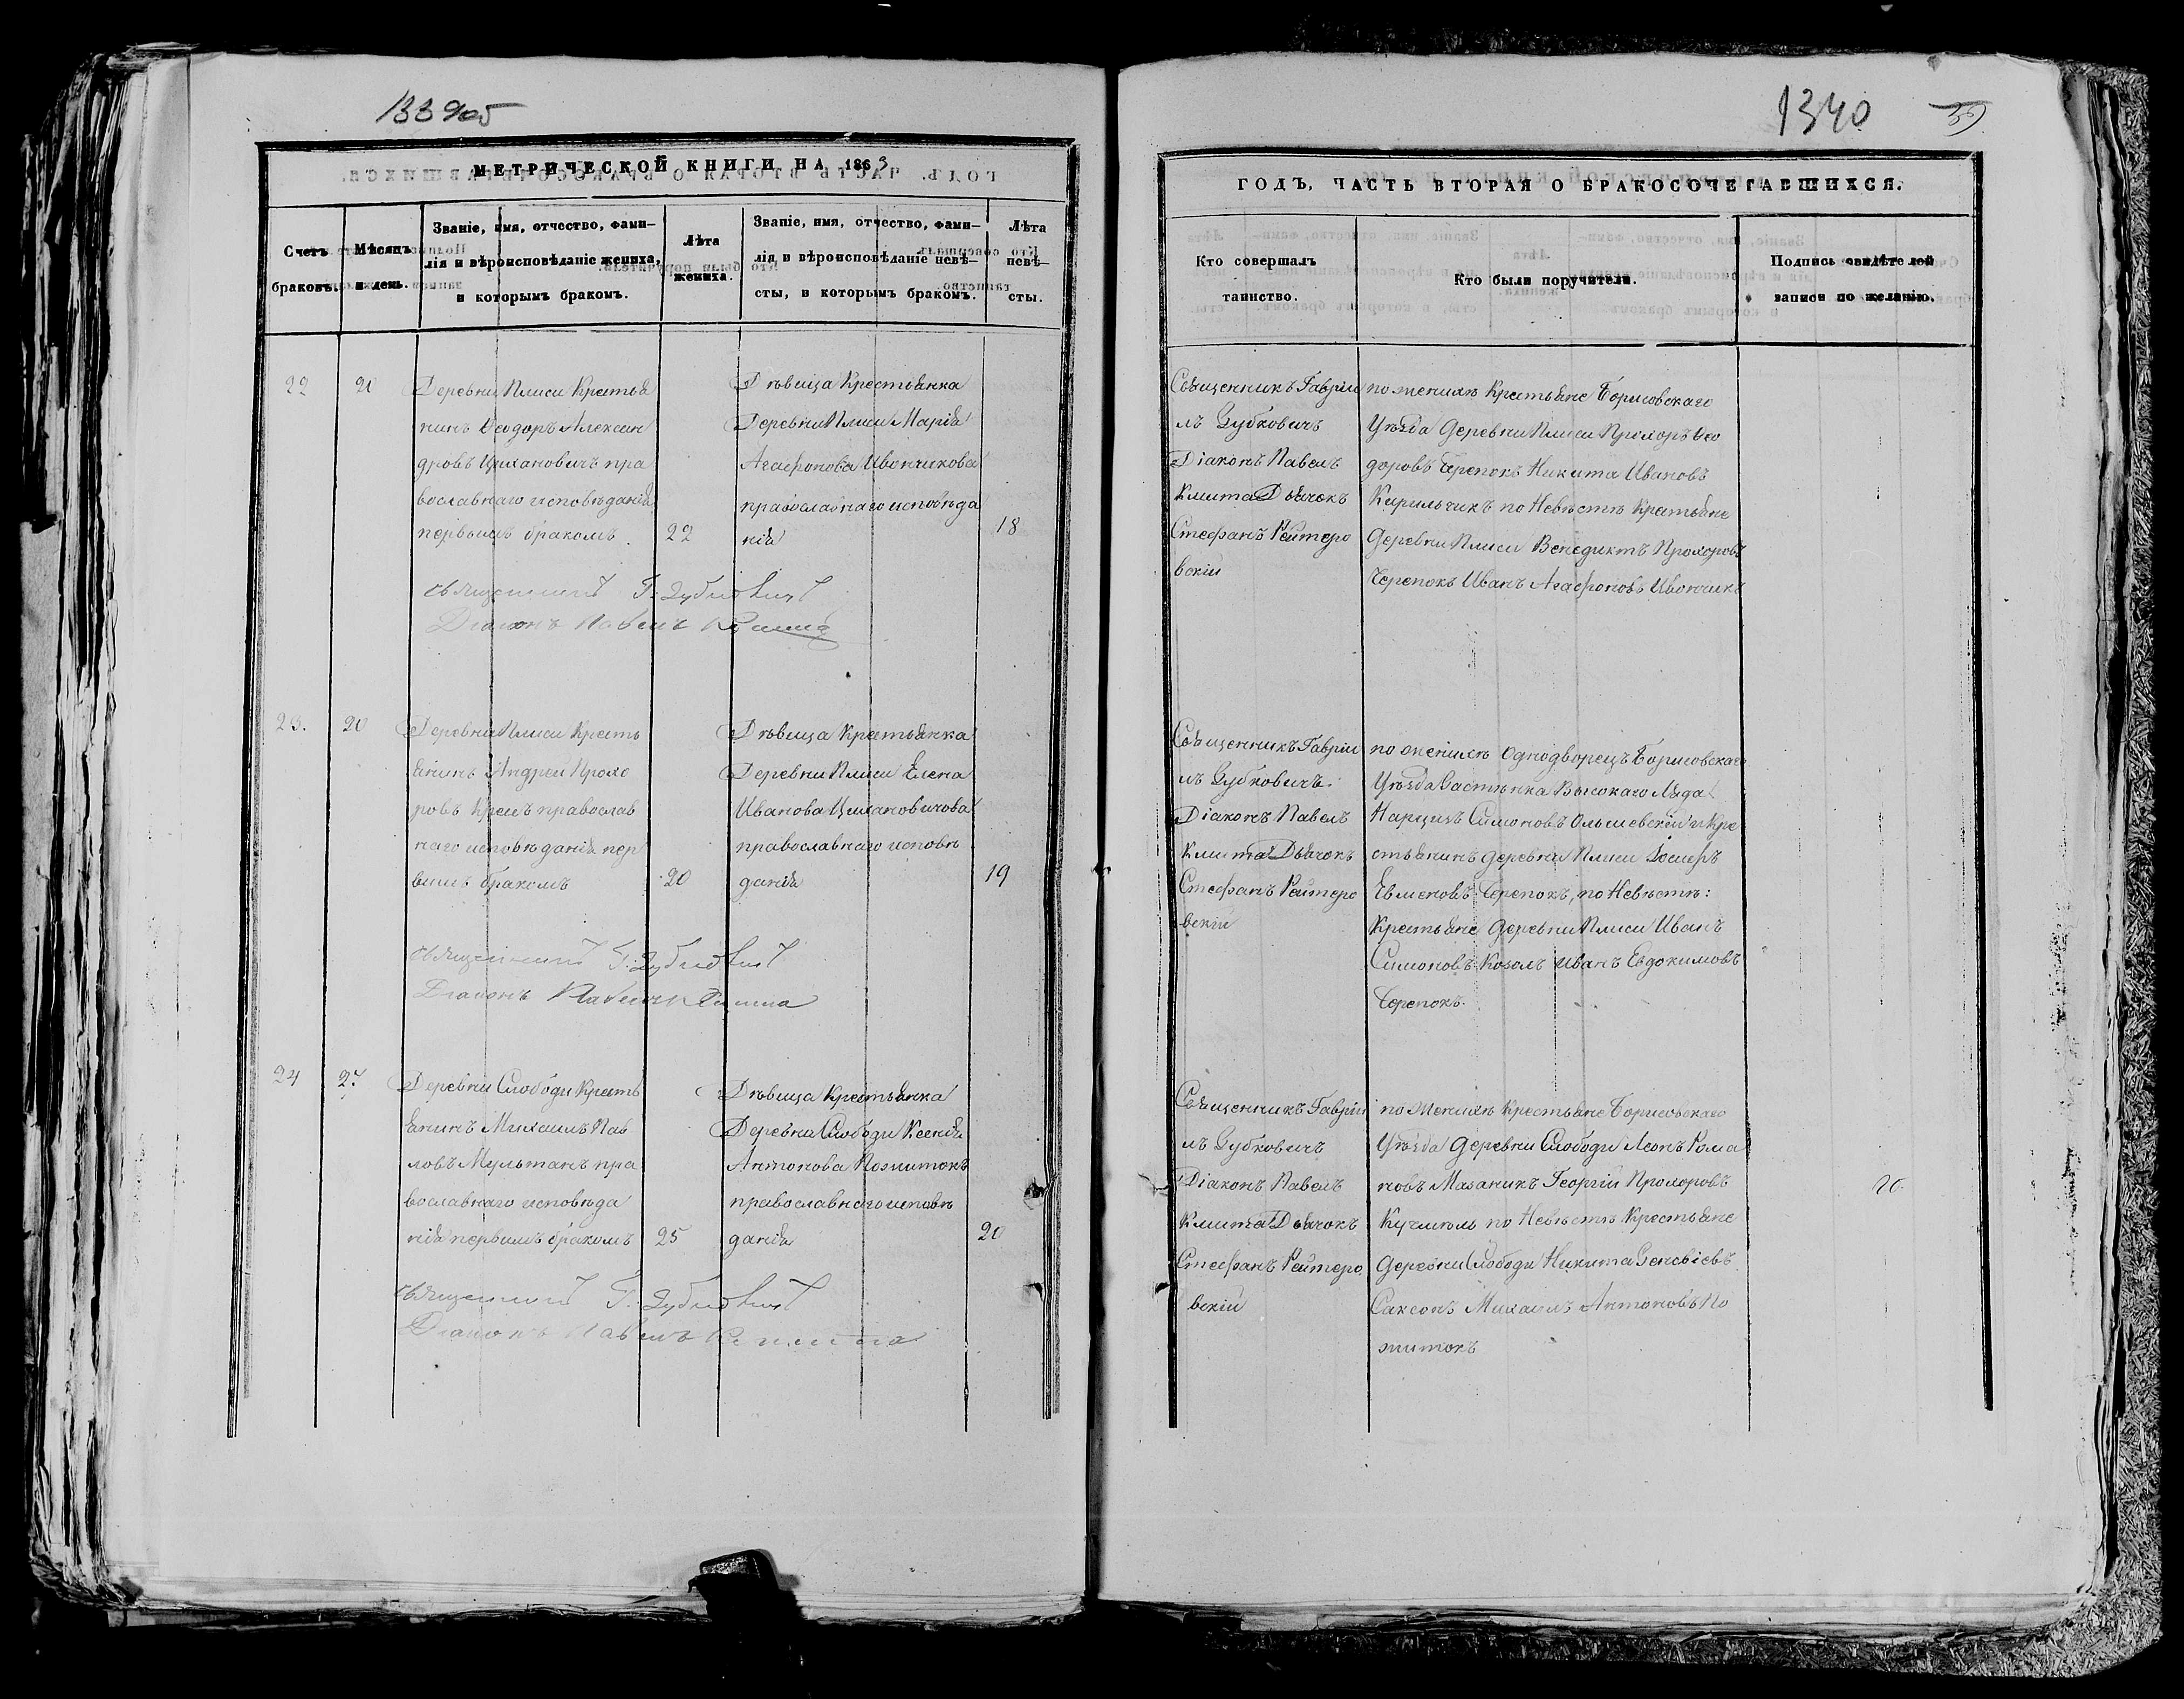 133905
МЕТРИЧЕСКОЙ КНИГИ НА 1863
Счетъ браковъ.
Мѣсяцъ и день.
Званіе, имя, отчество, фами-
лія и вѣроисповѣданіе жениха,
и которымъ бракомъ.
Лѣта
жениха.
Званіе, имя, отчество, фами-
лія и вѣроисповѣданіе невѣ-
сты, и которымъ бракомъ.
Лѣта
невѣ-
сты.
22
20
Деревни Плиси Крестья
нинъ Ѳеодоръ Алексан
дровъ Цихановичъ пра
вославнаго исповѣданія
первымъ бракомъ.
22
Дѣвица Крестьянка
Деревни Плиси Марія
Агафонова Ивончикова
православнаго исповѣда
нія
18
священникъ Г. Зубковичъ
Діаконъ Павелъ Клишта
23.
20
Деревни Плиси Кресть
янинъ Андрей Прохо
ровъ Крень православ
наго исповѣданія пер
вимъ бракомъ
20
Дѣвица Крестьянка
Деревни Плиси Елена
Иванова Цихановичова
православнаго исповѣ
данія
19
священникъ Г. Зубковичъ
Діаконъ Павелъ
24
27
Деревни Слободи Кресть
янинъ Михаилъ Пав
ловъ Мультанъ пра
вославнаго исповѣда
нія первимъ бракомъ
25
Дѣвица Крестьянка
Деревни Слободи Ксенія
Антонова Пожитокъ
православнаго исповѣ
данія
20
священникъ Г. Зубковичъ
Діаконъ Павелъ
1340
39
ГОДЪ, ЧАСТЬ ВТОРАЯ О БРАКОСОЧЕТАВШИХСЯ.
Кто совершалъ
таинство.
Кто были поручители.
Подпись свидѣтелей
записи по желанію.
Священникъ Гавріи
лъ Зубковичъ
Діаконъ Павелъ
Клишта Дьячокъ
Стефанъ Рейтеро
вскій
по женихѣ Крестьяне Борисовскаго
Уѣзда Деревни Плиси Прохоръ Ѳео
доровъ Черепокъ Никита Ивановъ
Кирильчикъ по Невѣстѣ Крестьяне
Деревни Плиси Венедиктъ Прохоровъ
Черепокъ Иванъ Агафоновъ Ивончикъ
Священникъ Гавріи
лъ Зубковичъ
Діаконъ Павелъ
Клишта Дьячокъ
Стефанъ Рейтеро
вскій
по женихѣ Однодворецъ Борисовскаго
Уѣзда Застѣнка Высокаго Ляда
Нарцизъ Симоновъ Ольшевскій и Кре
стьянинъ деревни Плиси
Черепокъ, по Невѣстѣ:
Крестьяне Деревни Плиси Иванъ
Симоновъ Козолъ Иванъ Евдокимовъ
Черепокъ.
Священникъ Гавріи
лъ Зубковичъ
Діаконъ Павелъ
Клишта Дьячокъ
Стефанъ Рейтеро
вскій
по Женихѣ Крестьяне Борисовскаго
Уѣзда Деревни Слободи Леонъ Рома
новъ Мазаникъ Георгій Прохоровъ
по Невѣстѣ Крестьяне
деревни Слободи Никита Зеновіевъ
Саксонъ Михаилъ Антоновъ По
житокъ